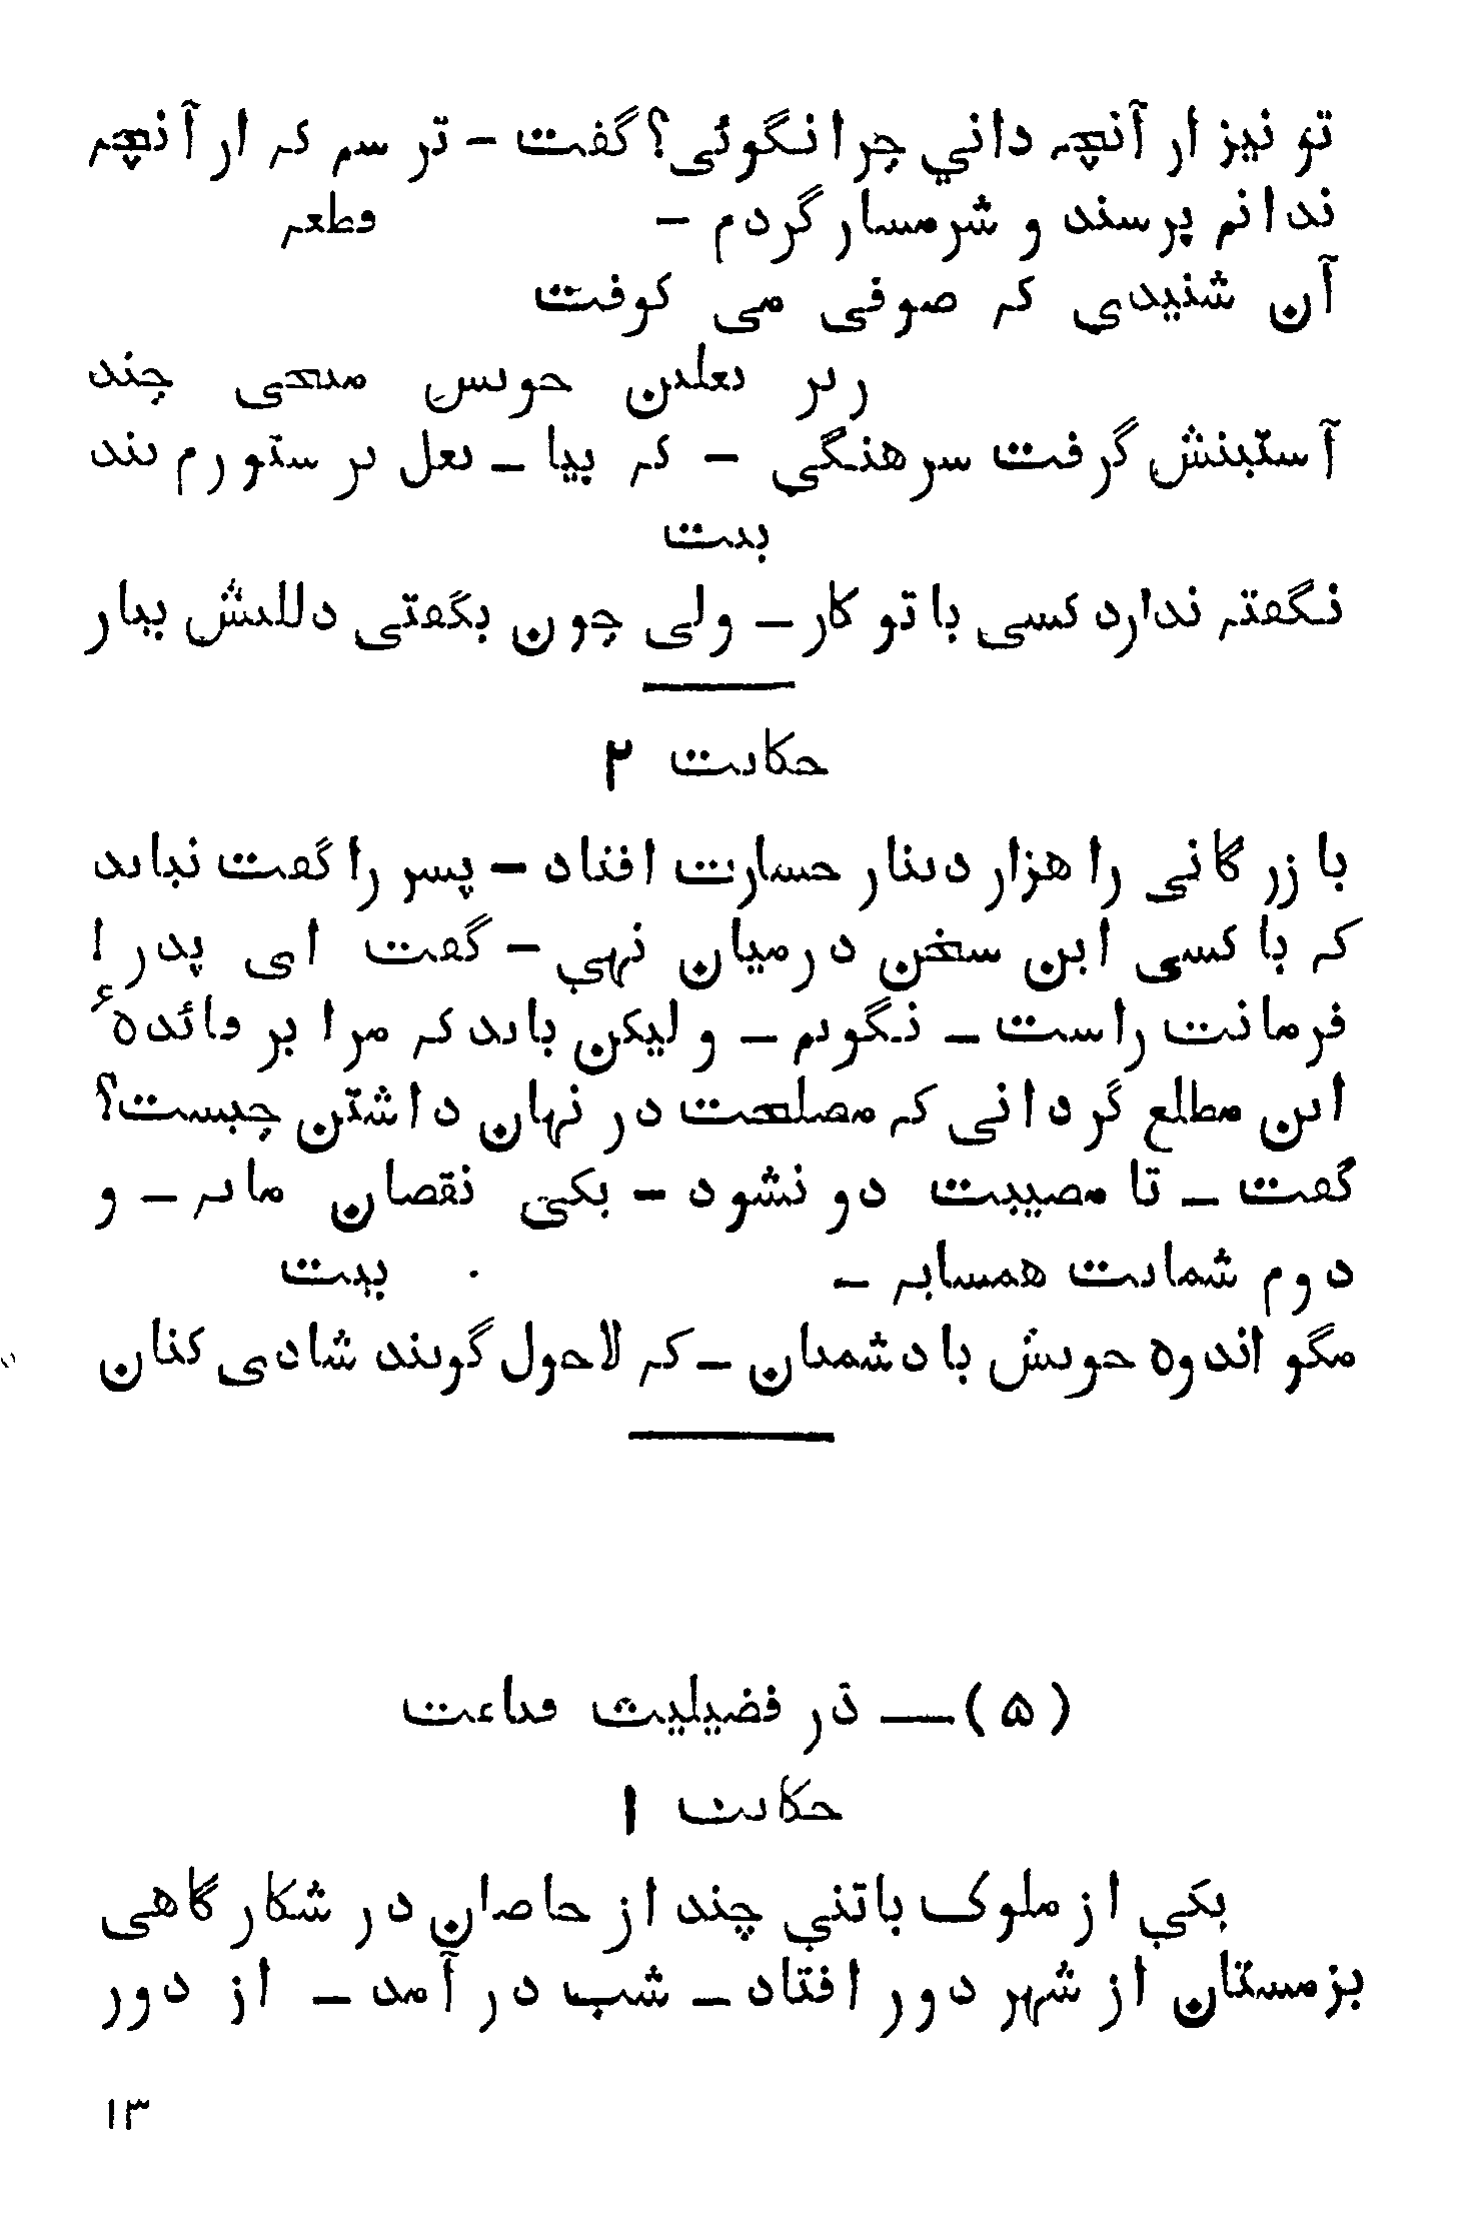 تو نیز از آنچه داني چرا نگوئی؟ گفت - ترسم که از آنچه
ندانم پرسند و شرمسار گردم - قطعه
آن شنیدي که صوفی می کوفت
زیر نعلین خویش میخی چند
آستینش گرفت سرهنگي - که بیا - نعل بر ستورم بند
بیت
نگفته ندارد کسی با تو کار - ولی چون بگفتی دلیلش بیار
حکایت ۲
بازرگانی را هزار دینار خسارت افتاد - پسر را گفت نباید
که با کسی این سخن درمیان نهي - گفت ای پدر !
فرمانت راست - نگویم - و لیکن باید که مرا بر فائدهٔ
این مطلع گردانی که مصلحت در نهان داشتن چیست؟
گفت - تا مصیبت دو نشود - یکی نقصان مایه - و
دوم شماتت همسایه - بیت
مگو اندوه خویش با دشمنان - که لاحول گویند شادی کنان
(۵) — در فضیلت قناعت
حکایت ۱
یکي از ملوک با تني چند از خاصان در شکارگاهی
بزمستان از شهر دور افتاد - شب در آمد - از دور
۱۳